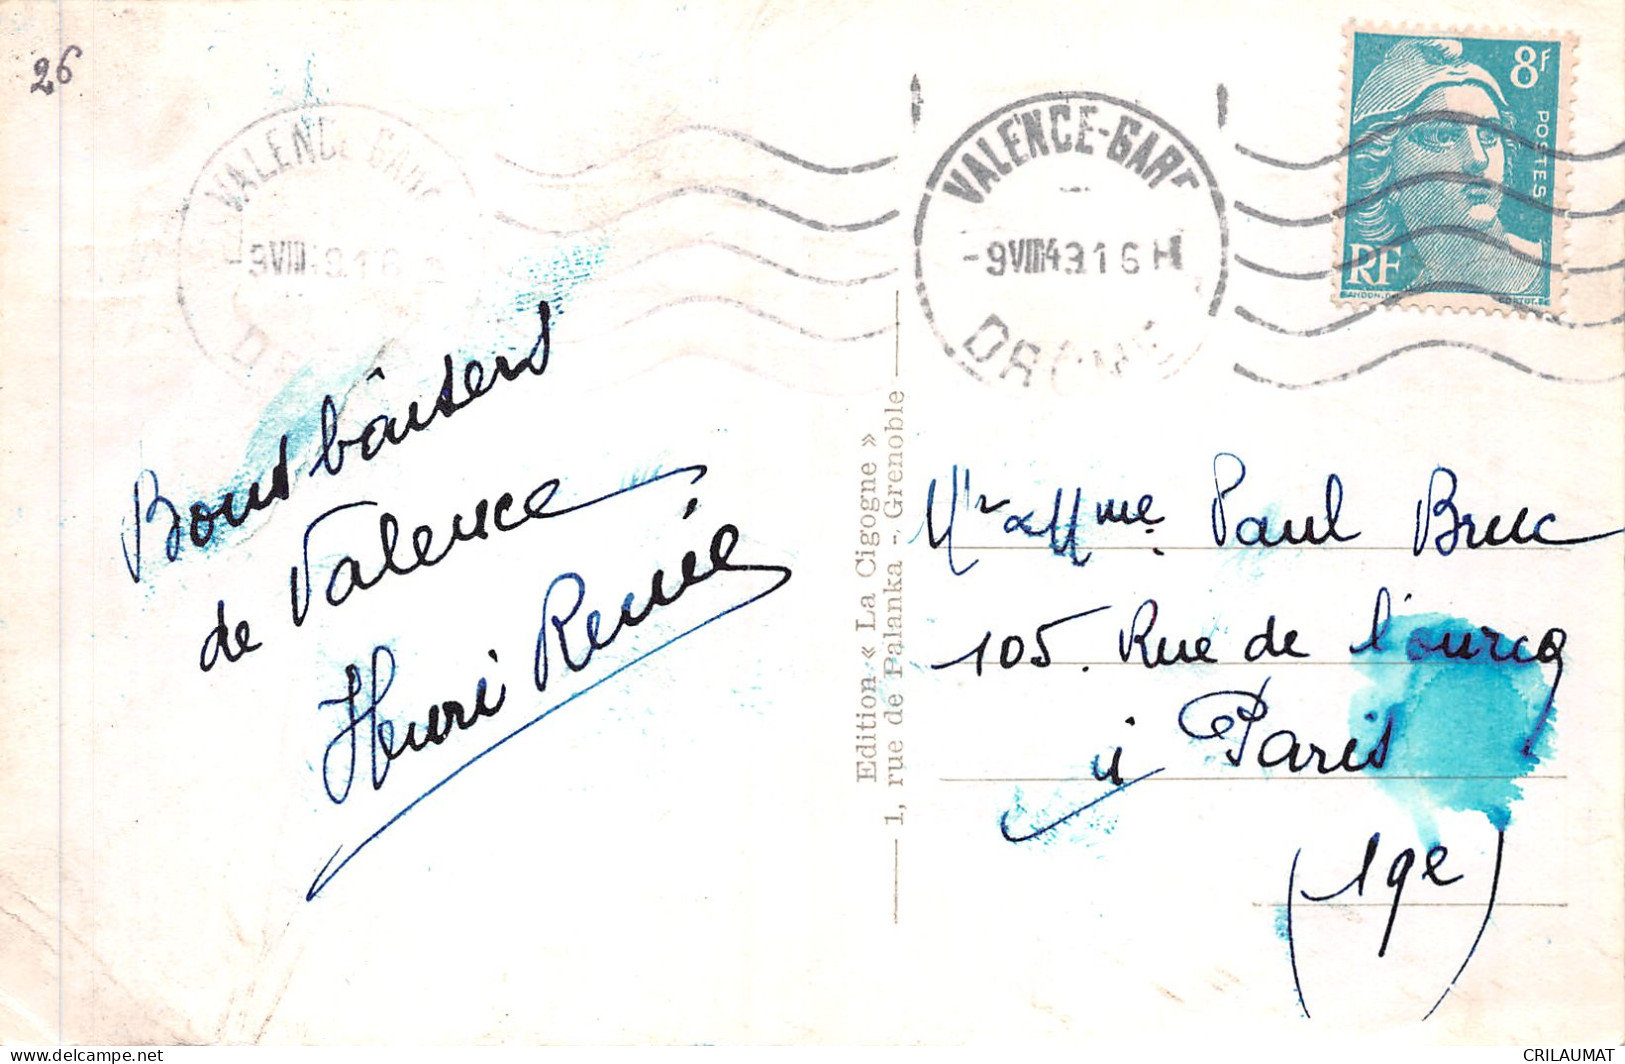 26
VALENCE-GARE
DR
VALENCE-GARE
-9VIII49 16H
DROME
8F
POSTES
RF
GANDON
CORTOT.SC
Bons bâisers
de Valence
Henri Renée
Edition « La Cigogne »
1, rue de Palanka - Grenoble
Mr & Mme Paul Bruc
105. Rue de l'ourcq
à Paris
(19e)
delcampe.net
CRILAUMAT